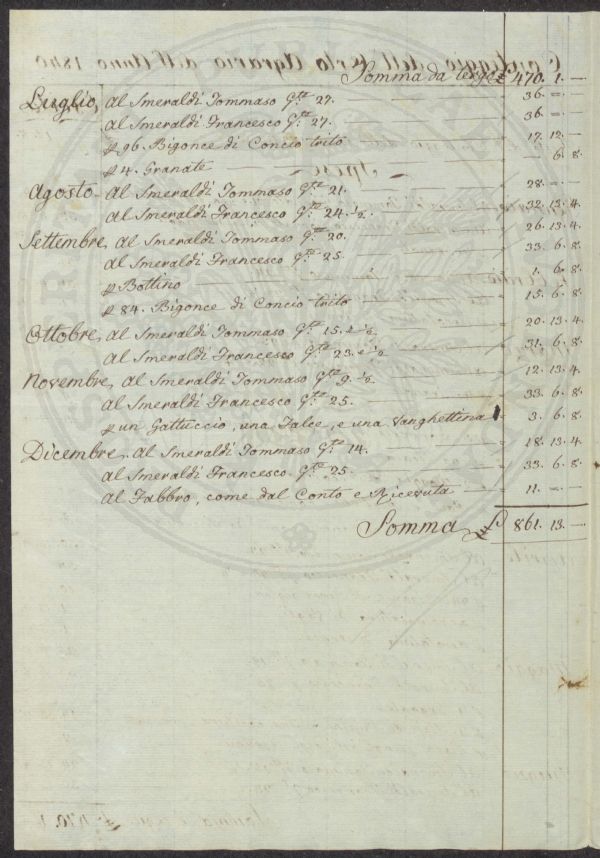 Somma da tergo £ 470. 1. —
Luglio, Al Smeraldi Tommaso G.te 27. — 36. = —
Al Smeraldi Francesco G.te 27. — 36. = —
p 96. Bigonce di Concio trito — 17. 12. —
p 4. Granate — 6. 8.
Agosto Al Smeraldi Tommaso G.te 21. — 28. = —
Al Smeraldi Francesco G.te 24. ½. — 32. 13. 4.
Settembre, Al Smeraldi Tommaso G.te 20. — 26. 13. 4.
Al Smeraldi Francesco G.te 25 — 33. 6. 8.
p Bottino — 1. 6. 8.
p 84. Bigonce di Concio trito — 15. 6. 8.
Ottobre, Al Smeraldi Tommaso G.te 15. e ½ — 20. 13. 4.
Al Smeraldi Francesco G.te 23. e ½ — 31. 6. 8.
Novembre, Al Smeraldi Tommaso G.te 9. ½. — 12. 13. 4.
Al Smeraldi Francesco G.te 25. — 33. 6. 8.
p un Gattuccio, una Falce, e una Vanghettina — 3. 6. 8.
Dicembre, Al Smeraldi Tommaso G.te 14. — 18. 13. 4.
Al Smeraldi Francesco G.te 25. — 33. 6. 8.
Al Fabbro, come dal Conto e Ricevuta — 11. — —
Somma £ 861. 13. —